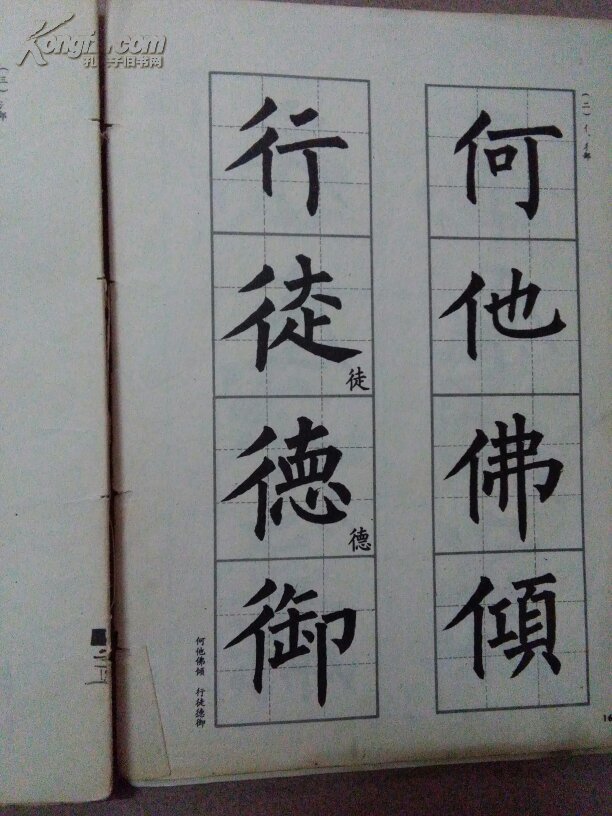 Kongfz.com
孔夫子旧书网
(二)亻、彳部
何
他
佛
傾
行
徒
徒
德
德
御
何他佛傾 行徒德御
16